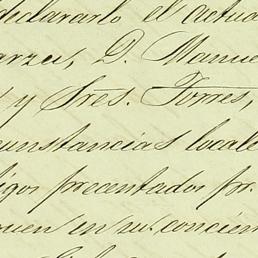 declararlo el actua
arzes, D. Manue
s y Sres. Torres,
cunstancias locale
tigos presentados pr.
quen en su concien